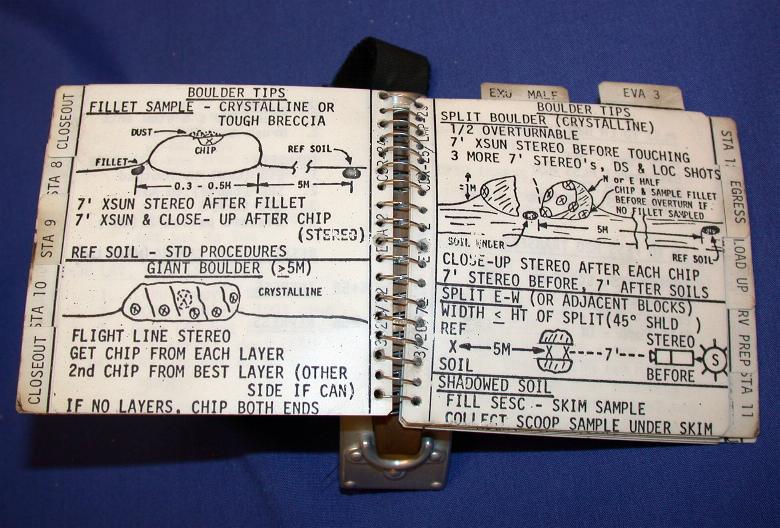 CLOSEOUT
STA 8
STA 9
STA 10
CLOSEOUT
BOULDER TIPS
FILLET SAMPLE - CRYSTALLINE OR
TOUGH BRECCIA
DUST
CHIP
FILLET
REF SOIL
0.3 - 0.5M
5M
7' XSUN STEREO AFTER FILLET
7' XSUN & CLOSE-UP AFTER CHIP
(STEREO)
REF SOIL - STD PROCEDURES
GIANT BOULDER (>5M)
CRYSTALLINE
FLIGHT LINE STEREO
GET CHIP FROM EACH LAYER
2nd CHIP FROM BEST LAYER (OTHER
SIDE IF CAN)
IF NO LAYERS, CHIP BOTH ENDS
EMU MALF
EVA 3
BOULDER TIPS
SPLIT BOULDER (CRYSTALLINE)
1/2 OVERTURNABLE
7' XSUN STEREO BEFORE TOUCHING
3 MORE 7' STEREO's, DS & LOC SHOTS
N or E HALF
CHIP & SAMPLE FILLET
BEFORE OVERTURN IF
NO FILLET SAMPLED
≈1M
5M
SOIL UNDER
REF SOIL
CLOSE-UP STEREO AFTER EACH CHIP
7' STEREO BEFORE, 7' AFTER SOILS
SPLIT E-W (OR ADJACENT BLOCKS)
WIDTH ≤ HT OF SPLIT(45° SHLD )
REF
STEREO
X 5M X X 7' S
SOIL
BEFORE
SHADOWED SOIL
FILL SESC - SKIM SAMPLE
COLLECT SCOOP SAMPLE UNDER SKIM
EGRESS
LOAD UP
RV PREP
STA 11